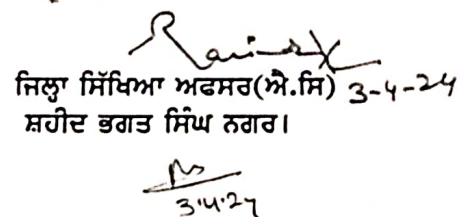 ਜਿਲ੍ਹਾ ਸਿੱਖਿਆ ਅਫਸਰ(ਐ.ਸਿ) 3-4-24
ਸ਼ਹੀਦ ਭਗਤ ਸਿੰਘ ਨਗਰ।
3.4.24